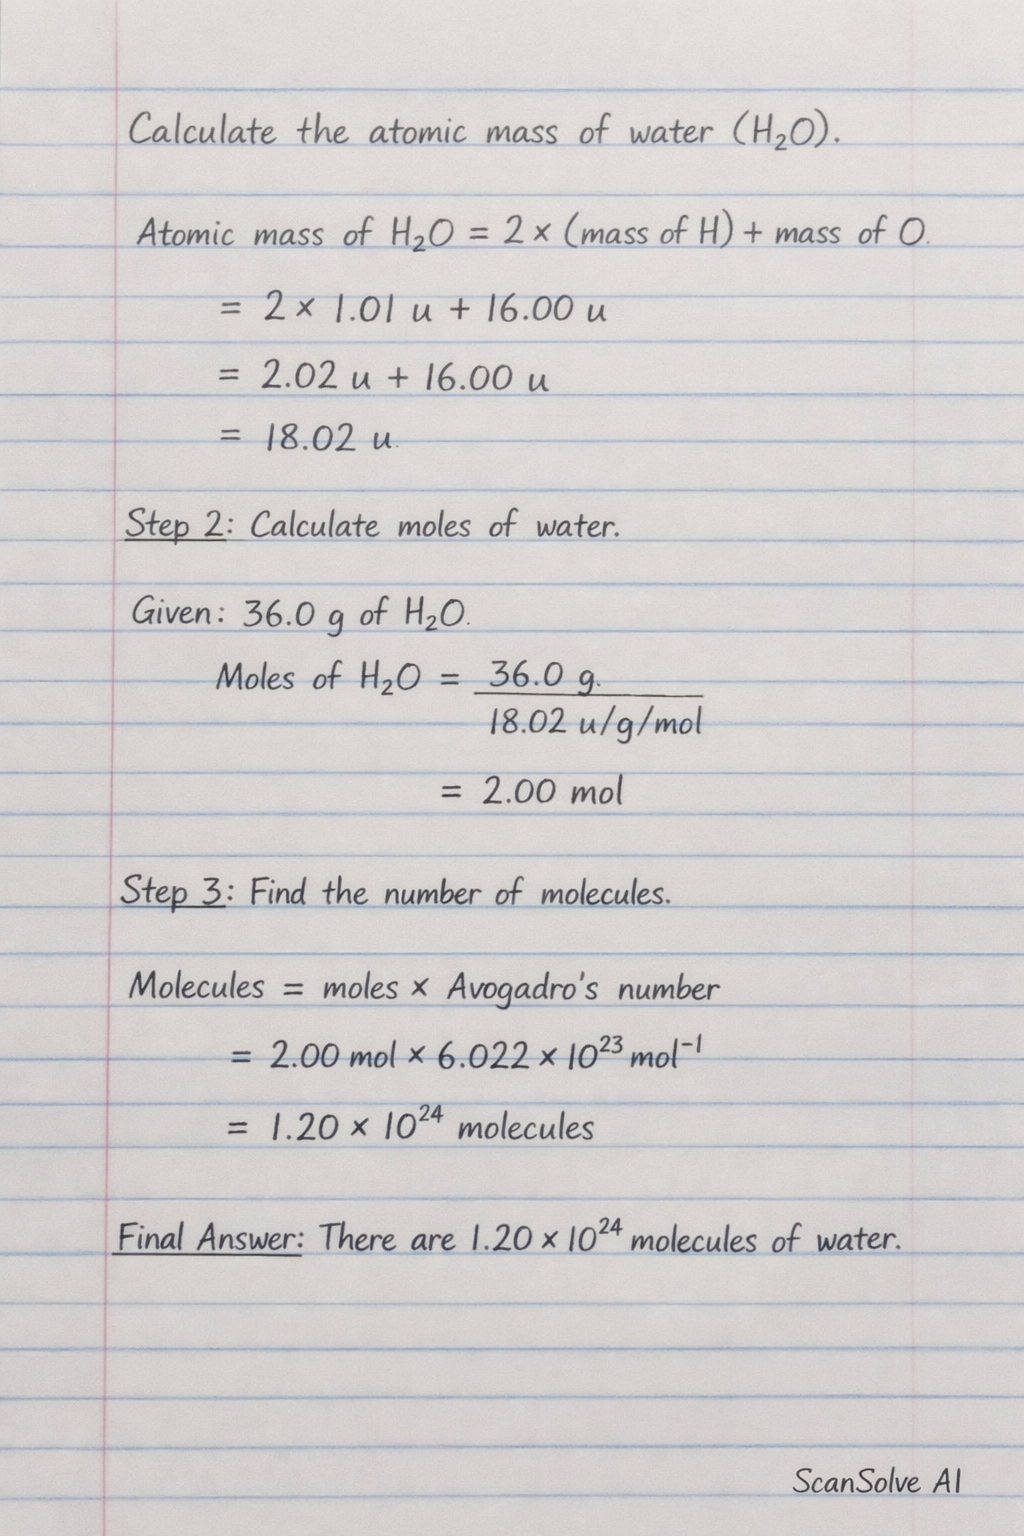 Calculate the atomic mass of water (H₂O).
Atomic mass of H₂O = 2 × (mass of H) + mass of O.
= 2 × 1.01 u + 16.00 u
= 2.02 u + 16.00 u
= 18.02 u.
Step 2: Calculate moles of water.
Given: 36.0 g of H₂O.
Moles of H₂O = 36.0 g.
18.02 u/g/mol
= 2.00 mol
Step 3: Find the number of molecules.
Molecules = moles × Avogadro's number
= 2.00 mol × 6.022 × 10²³ mol⁻¹
= 1.20 × 10²⁴ molecules
Final Answer: There are 1.20 × 10²⁴ molecules of water.
ScanSolve AI